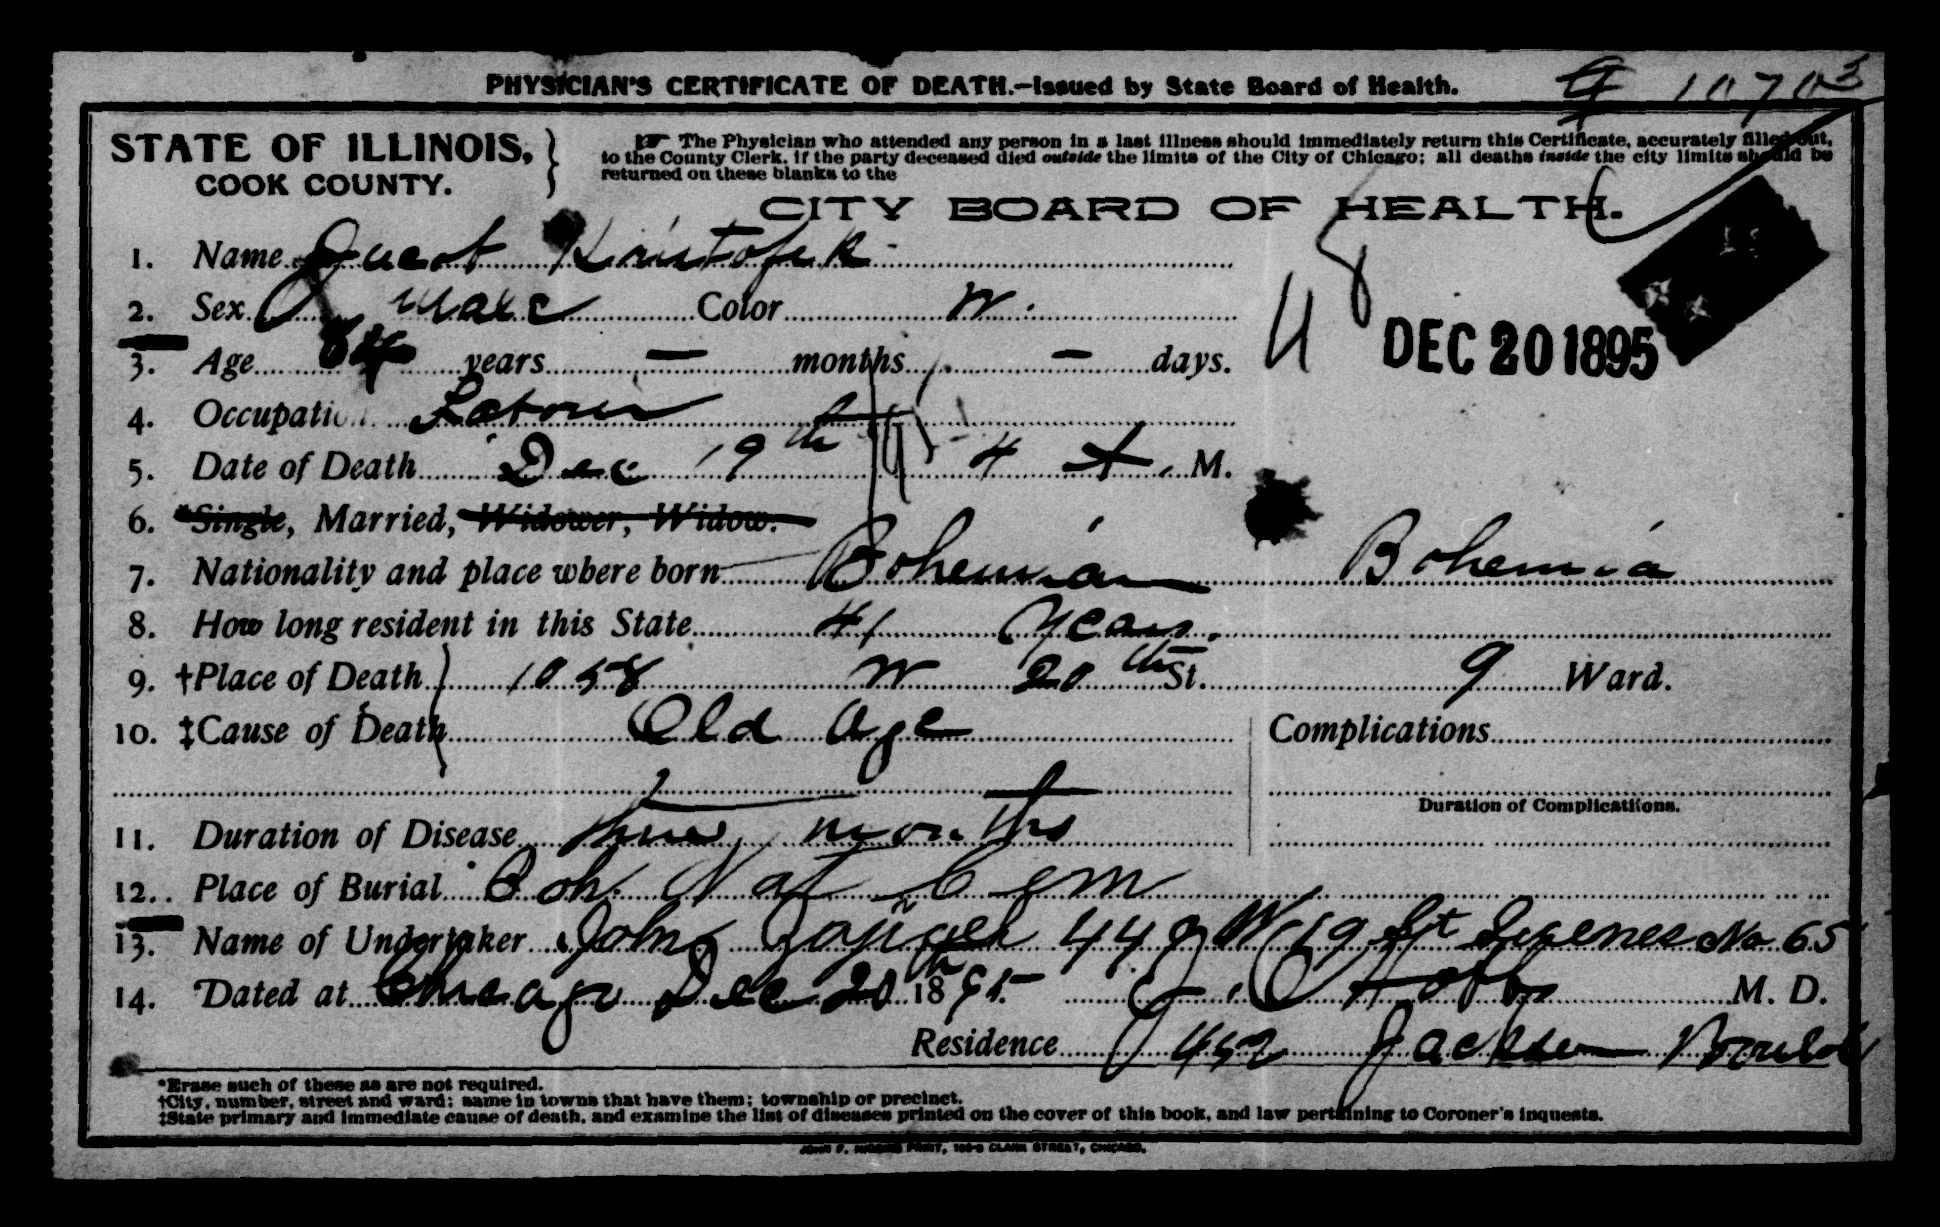 PHYSICIAN'S CERTIFICATE OF DEATH.—Issued by State Board of Health. 10703
STATE OF ILLINOIS,
COOK COUNTY.
☞ The Physician who attended any person in a last illness should immediately return this Certificate, accurately filled out,
to the County Clerk, if the party deceased died outside the limits of the City of Chicago; all deaths inside the city limits should be
returned on these blanks to the
CITY BOARD OF HEALTH.
1. Name Jacob Kristofek
2. Sex Male Color W.
3. Age 84 years — months — days.
DEC 20 1895
4. Occupation Laborer
5. Date of Death Dec 19th 4 A. M.
6. *Single, Married, Widower, Widow.
7. Nationality and place where born Bohemian Bohemia
8. How long resident in this State 41 Years.
9. †Place of Death 1058 W 20th St. 9 Ward.
10. ‡Cause of Death Old Age Complications
Duration of Complications.
11. Duration of Disease three months
12. Place of Burial Boh. Nat Cem
13. Name of Undertaker John 449 W 19 St No 65
14. Dated at Chicago Dec 20th 1895 J. C. Hobbs M. D.
Residence 452 Jackson
*Erase such of these as are not required.
†City, number, street and ward; name in towns that have them; township or precinct.
‡State primary and immediate cause of death, and examine the list of diseases printed on the cover of this book, and law pertaining to Coroner's inquests.